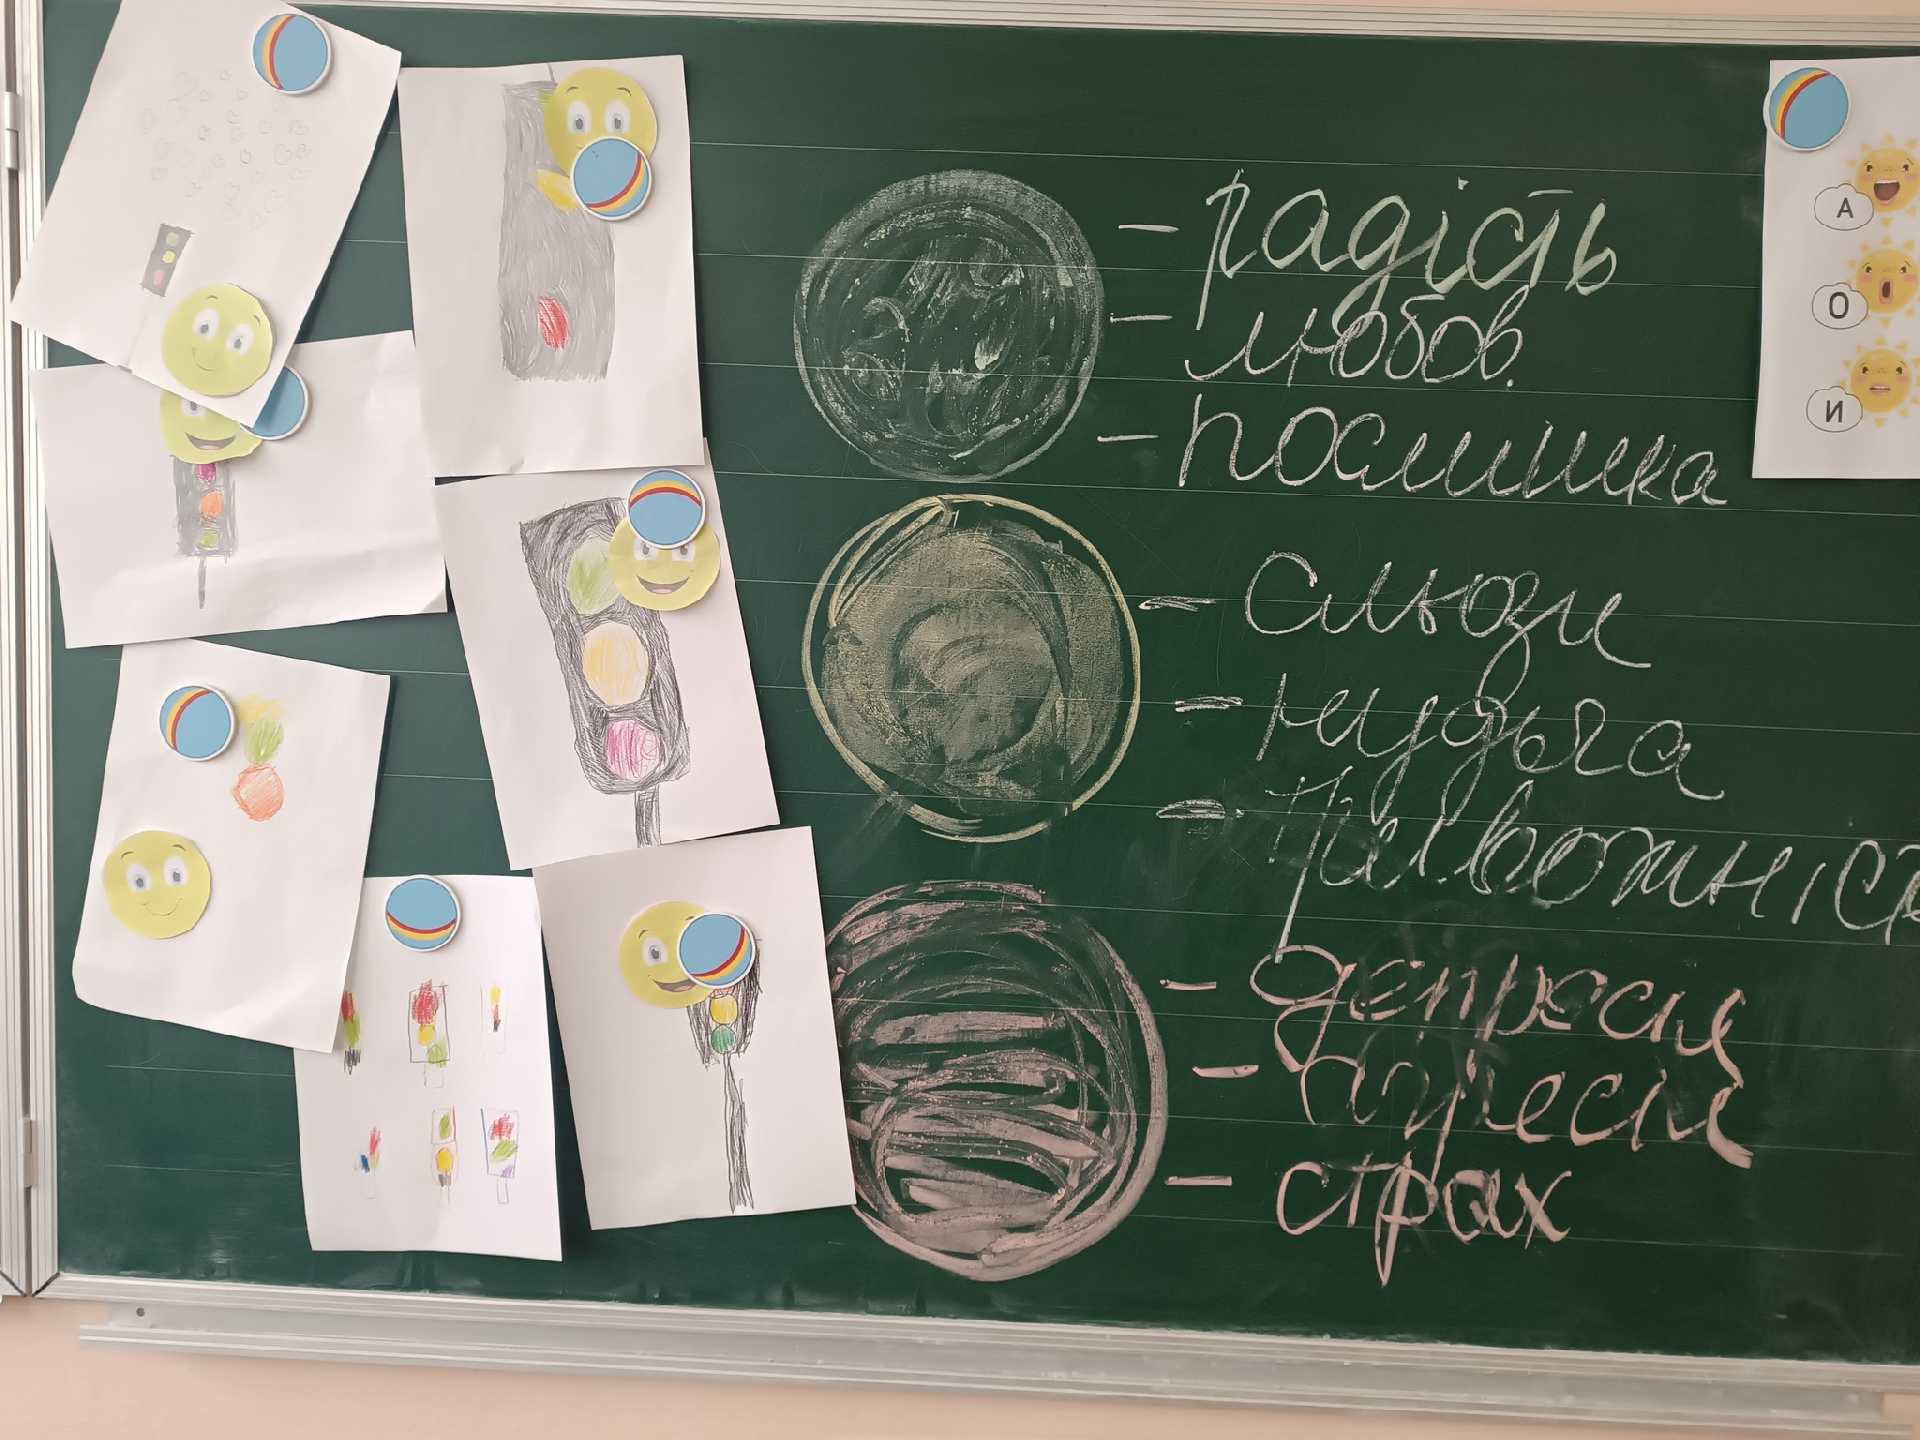 - радість
- любов.
- посмішка
- сльози
- нудьга
- тривожніст
- депресія
- агресія
- страх
А
О
И